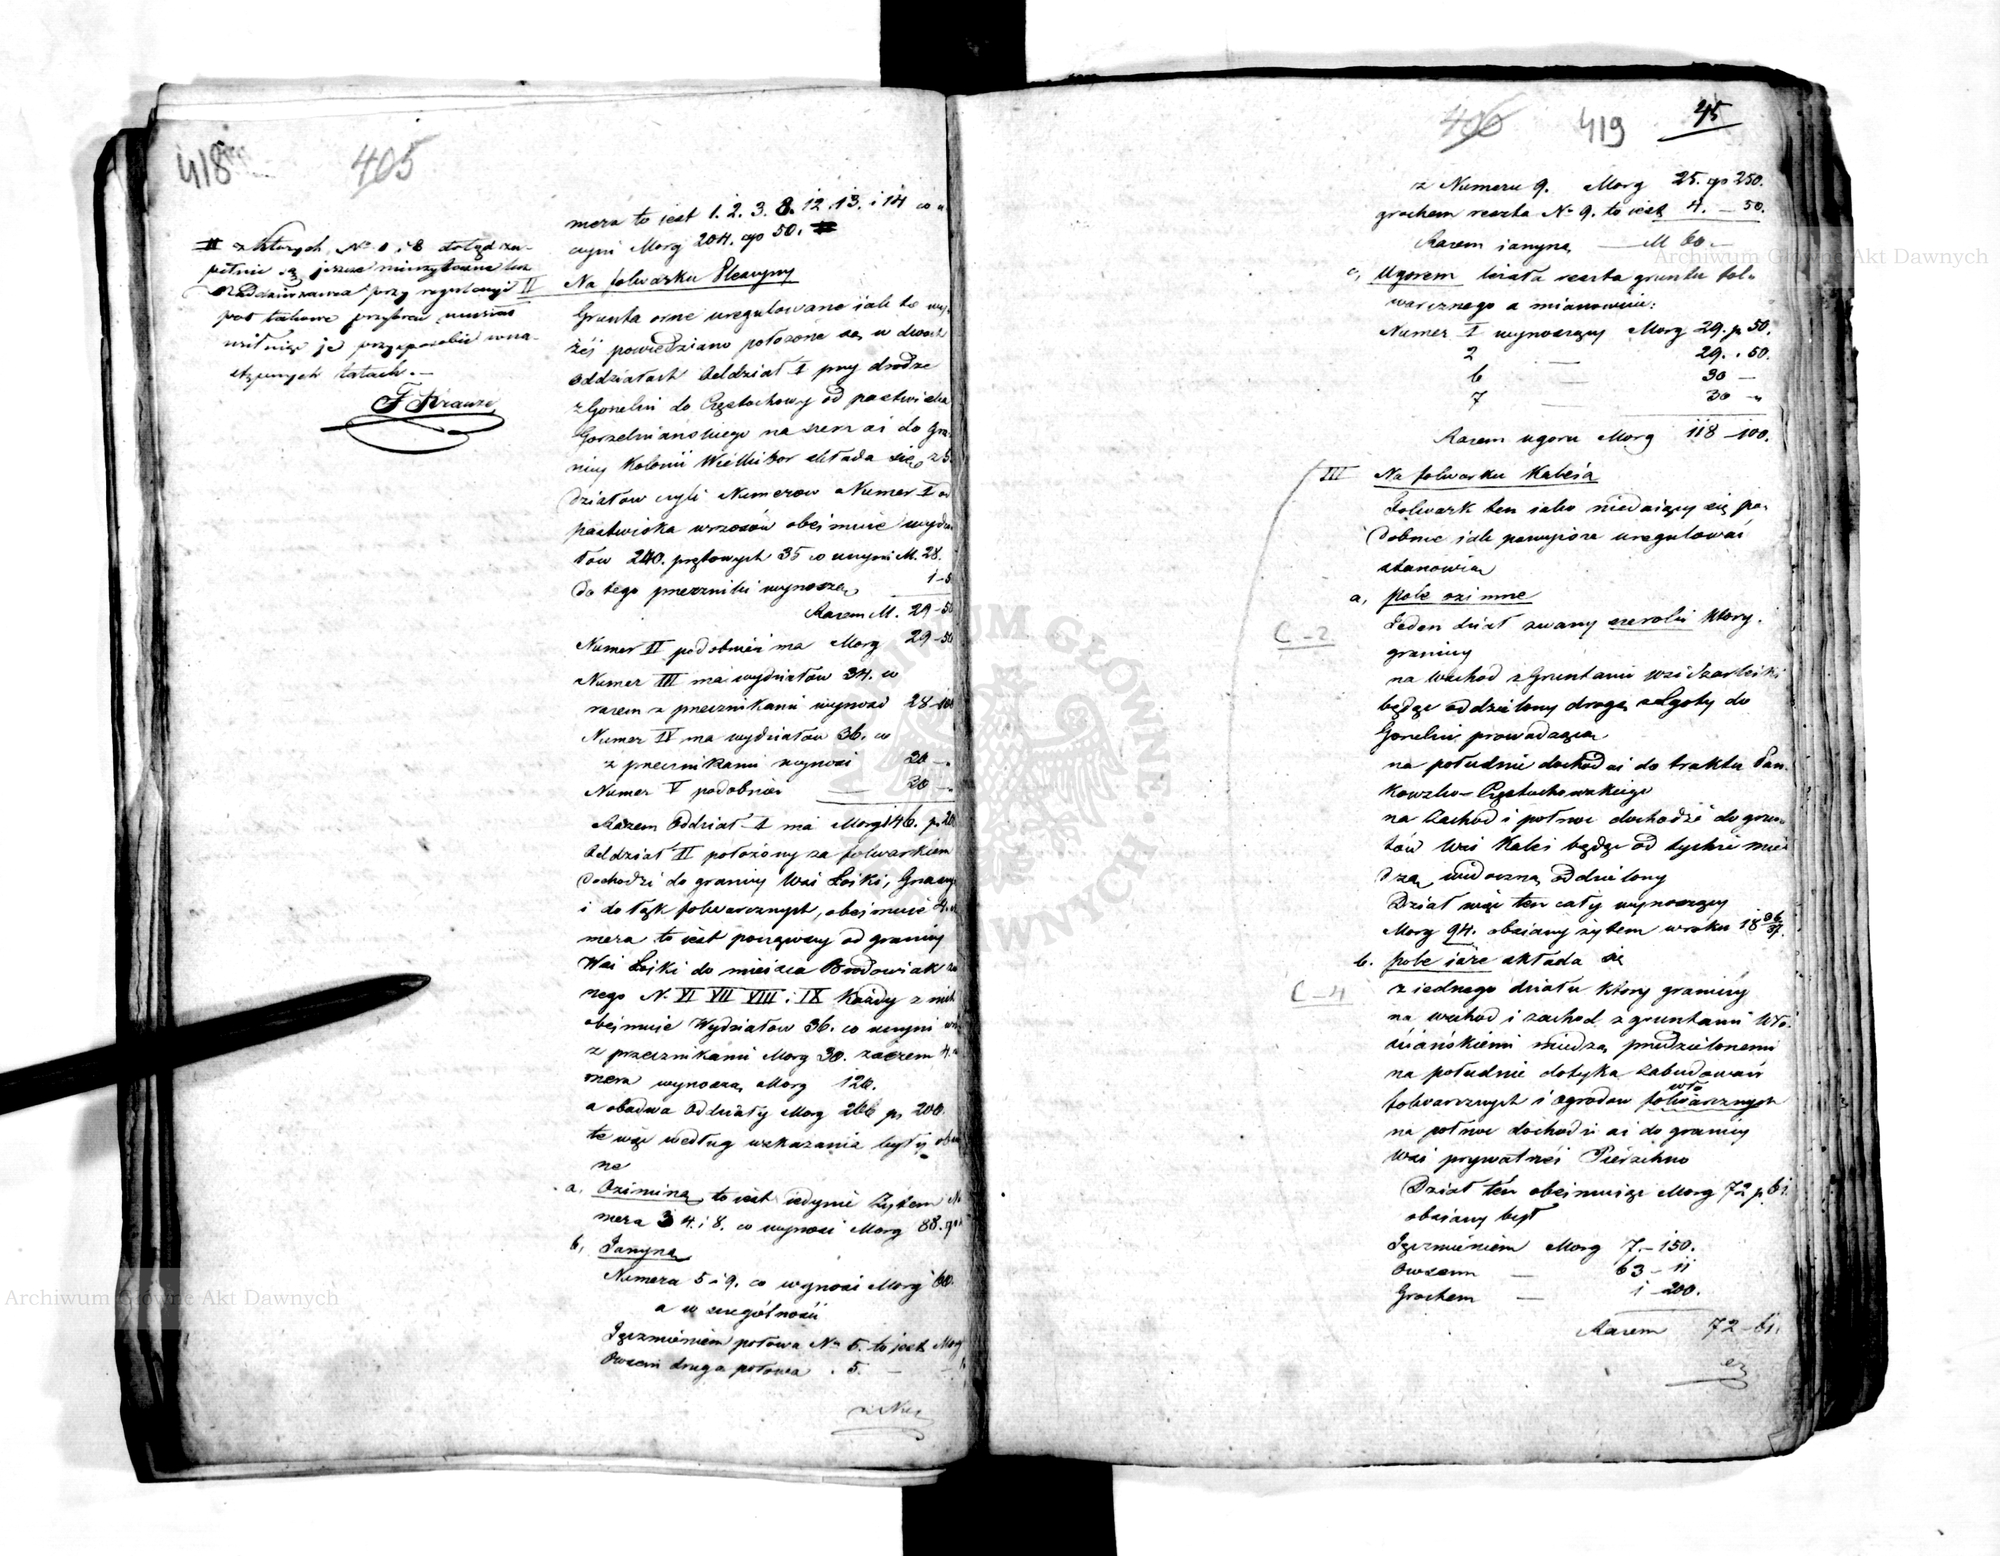 418
405
# z których N° 1 i 8 dotąd zu-
pełnie są jeszcze
przy regulacyi
pod takowe przybrał
więc je przysposobić w na-
stępnych latach. —
F Krauze
mera to iest 1. 2. 3. 8. 12. 13. i 14 co u
czyni Morg 204. p 50. #
II Na folwarku Gnaszyny
Grunta orne uregulowane iak to wy-
żéj powiedziano położone są w dwóch
Oddziałach Oddział I przy drodze
z Gorzelni do Częstochowy od pastwiska
Gorzelnianskiego na aż do Gra-
nicy Kolonii Wielkibor składa się z 5
działów czyli Numerow Numer I od
pastwiska wrzosów obejmuie wydzia
łów 240. prętowych 35 co uczyni M. 28.
do tego przeczniki wynoszą 1 – 5
Razem M. 29 – 50
Numer II podobnież ma Morg 29 – 50
Numer III ma wydziałów 34. co
razem z przecznikami wynosi 28 – 100
Numer IV ma wydziałów 36. co
z przecznikami wynosi 30 – „
Numer V podobnież — 30 – „
Razem Oddział I ma Morg 146. p. 200
Oddział II położony za folwarkiem
dochodzi do granicy Wsi Łoiki, Gnaszyn
i do łąk folwarcznych, obejmuie 4. nu
mera to iest począwszy od granicy
Wsi Łoiki do mieisca Brodowiak zwa
nego N. VI VII VIII i IX każdy z nich
obejmuie Wydziałów 36. co uczyni wraz
z przecznikami Morg 30. zaczem 4. nu
mera wynoszą Morg 120.
a obadwa Oddziały Morg 266 p. 200.
te więc według wskazania były obsia
ne
a, Oziminą to iest iedynie Żytem Nu
mera 3 4. i 8. co wynosi Morg 88. p
b, Jarzyną
Numera 5 i 9. co wynosi Morg 60.
a w szczególności
Jęczmieniem połowa N° 5. to jest Morg
Owsem druga połowa . 5. —
z Nu
406
419
45
z Numeru 9. Morg 25. p 250.
grochem reszta N° 9. to iest 4. – 50.
Razem iarzyną — M 60. –
c, Ugorem leżała reszta gruntu fol-
warcznego a mianowicie:
Numer 1 wynoszący Morg 29. p. 50.
2 — 29. . 50.
6 — 30 –
7 — 30 – „
Razem ugoru Morg 118 – 100.
III Na folwarku Kaleia
Folwark ten iako niedaiący się po-
dobnie iak powyższe uregulować
stanowią
a, pole ozimne
C – 2
Jeden dział zwany szeroki który
graniczy
na wschod z Gruntami wsi Szarleiki
będąc oddzielony drogą z Lgoty do
Gorzelni prowadzącą
na południe dochodzi do traktu Pan-
kowsko – Częstochowskiego
na Zachod i połnoc dochodzi do grun-
tów Wsi Kalei będąc od tychże mie
dzą widoczną oddzielony
Dział więc ten cały wynoszący
Morg 94. obsiany żytem w roku 18 36/37.
b. pole iare składa się
C – 4
z iednego działu który graniczy
na wschod i zachod z gruntami Wło-
ściańskiemi miedzą przedzielonemi
na południe dotyka zabudowań
wło
folwarcznych i ogrodow folwarcznych
na połnoc dochodzi aż do granicy
Wsi prywatnéi Pierzchno
Dział tén obejmuiąc Morg 72 p. 61.
obsiany był
Jęczmieniem Morg 7. – 150.
Owsem — 63 – 11
Grochem — 1 – 200.
Razem 72 – 61.
Archiwum Główne Akt Dawnych
Archiwum Główne Akt Dawnych